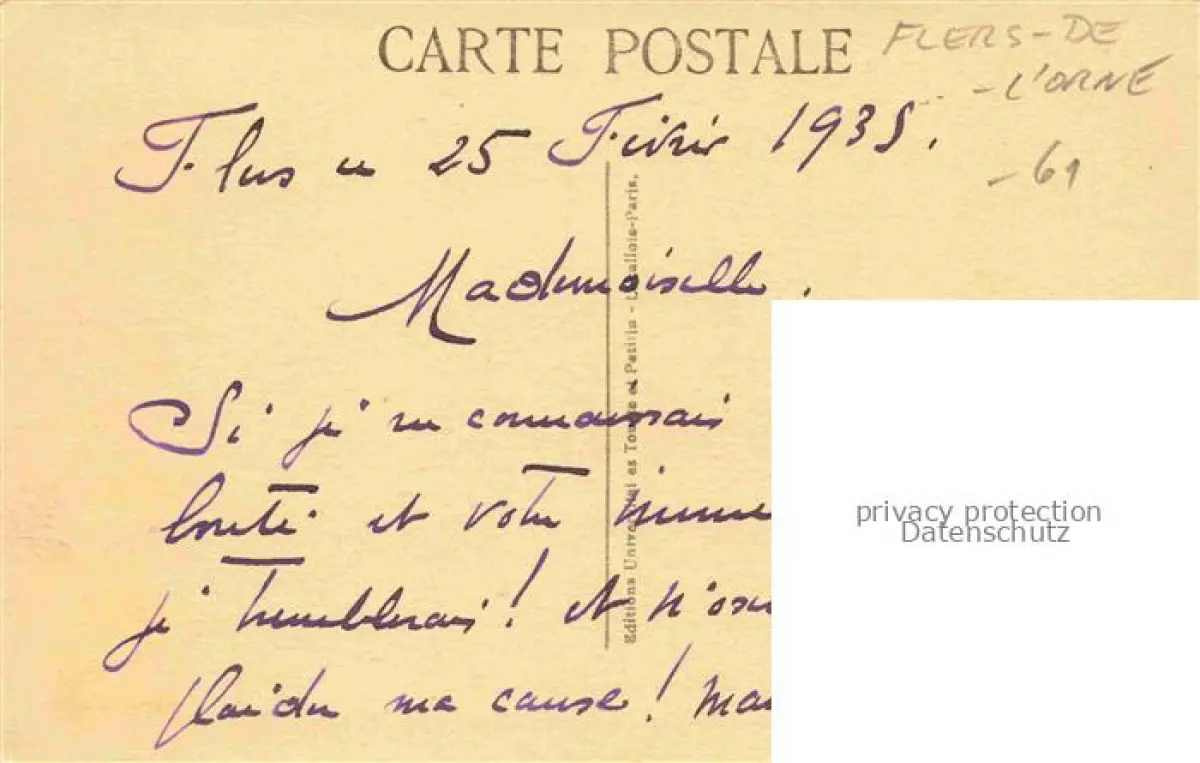 CARTE POSTALE
FLERS-DE
-L'ORNE
-61
Flers le 25 Février 1935.
Mademoiselle.
Si je ne connaissais
bonté et votre
je tremblerais! et n'os
plaider ma cause! mai
Editions Universelles et Petitin - Levallois-Paris.
privacy protection
Datenschutz